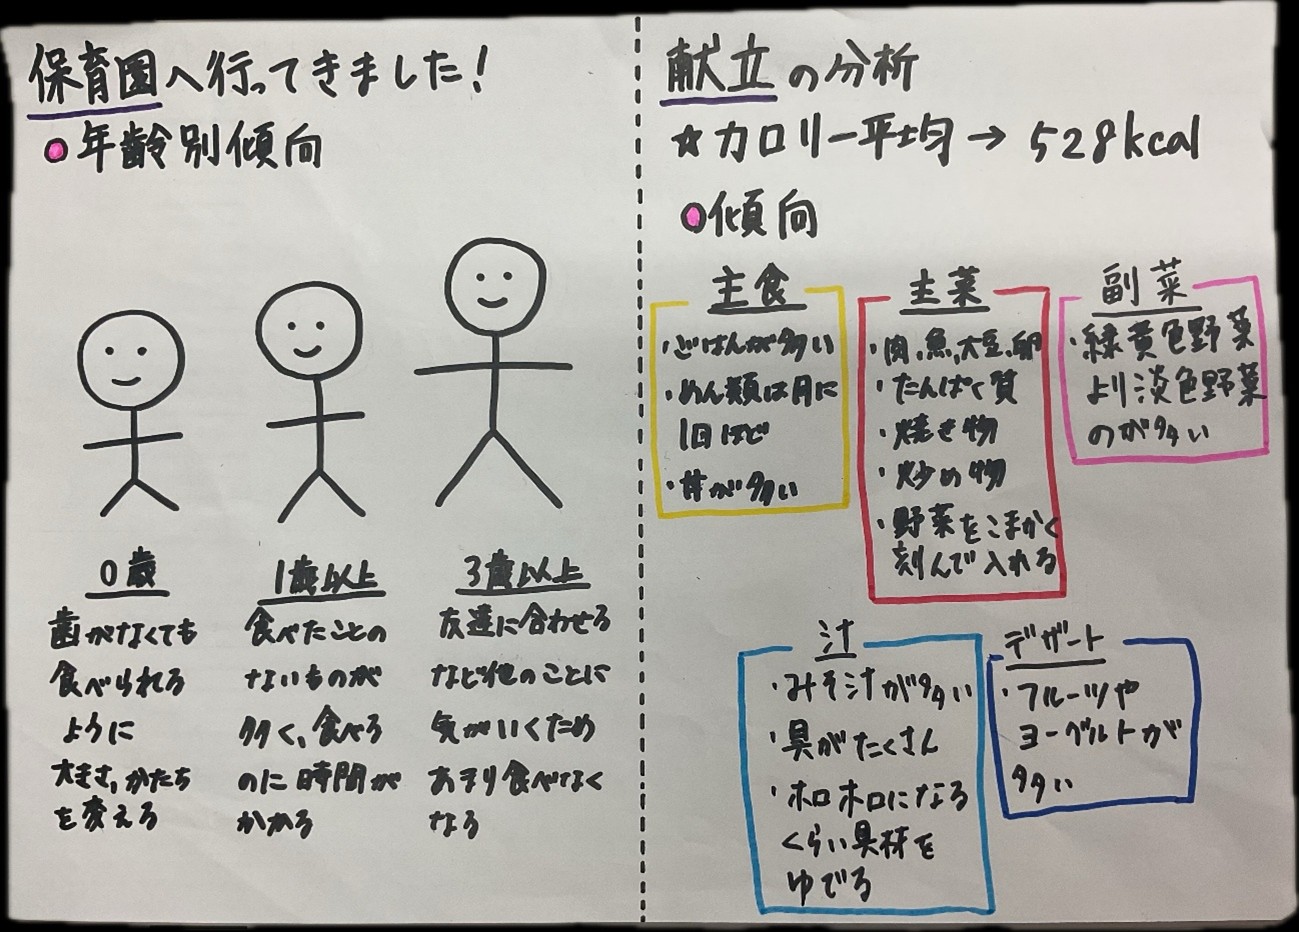 保育園へ行ってきました!
年齢別傾向
0歳
歯がなくても
食べられる
ように
大きさ,かたち
を変える
1歳以上
食べたことの
ないものが
多く、食べる
のに時間が
かかる
3歳以上
友達に合わせる
など他のことに
気がいくため
あまり食べなく
なる
献立の分析
☆カロリー平均→528kcal
傾向
主食
・ごはんが多い
・めん類は月に
1回ほど
・丼が多い
主菜
・肉、魚、大豆、卵
・たんぱく質
・焼き物
・炒め物
・野菜をこまかく
刻んで入れる
副菜
・緑黄色野菜
より淡色野菜
のが多い
汁
・みそ汁が多い
・具がたくさん
・ホロホロになる
くらい具材を
ゆでる
デザート
・フルーツや
ヨーグルトが
多い